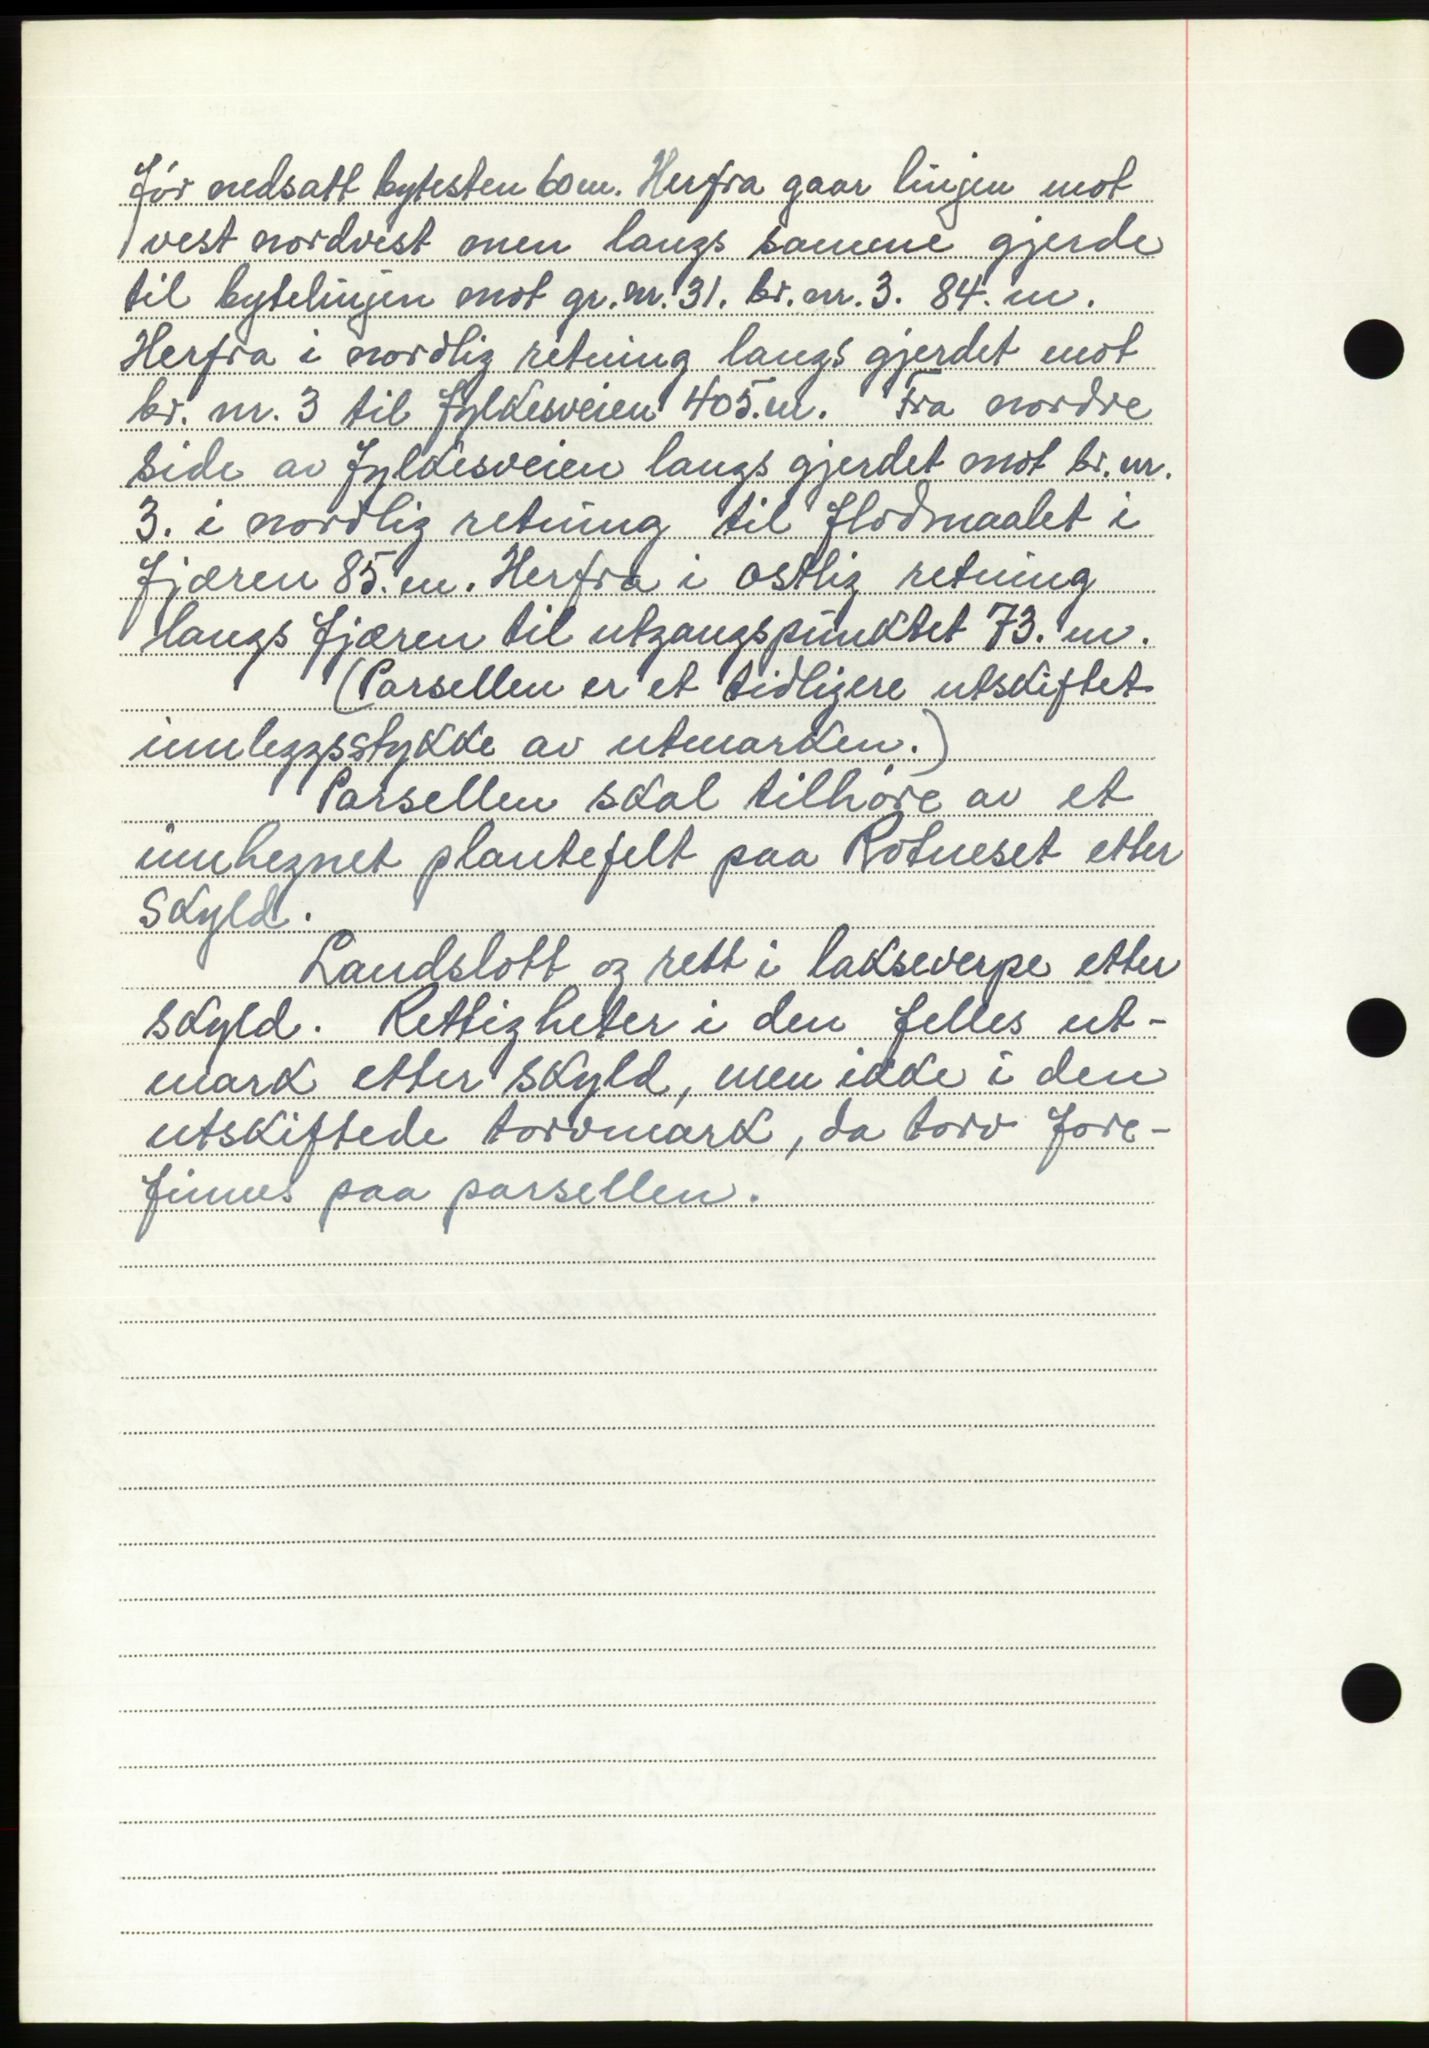 før nedsatt bytesten 60 m. Herfra gaar linjen mot
vest nordvest men langs samme gjerde
til bytelinjen mot gr. nr. 31. br. nr. 3. 84. m.
Herfra i nordlig retning langs gjerdet mot
br. nr. 3 til fylkesveien 405. m. Fra nordre
side av fylkesveien langs gjerdet mot br. nr.
3. i nordlig retning til flodmaalet i
fjæren 85. m. Herfra i østlig retning
langs fjæren til utgangspunktet 73. m.
(Parsellen er et tidligere utskiftet
innleggsstykke av utmarken.)
Parsellen skal tilhøre av et
innhegnet plantefelt paa Rotneset etter
skyld.
Landslott og rett i lakseverpe etter
skyld. Rettigheter i den felles ut-
mark etter skyld, men ikke i den
utskiftede torvmark, da torv fore-
finnes paa parsellen.